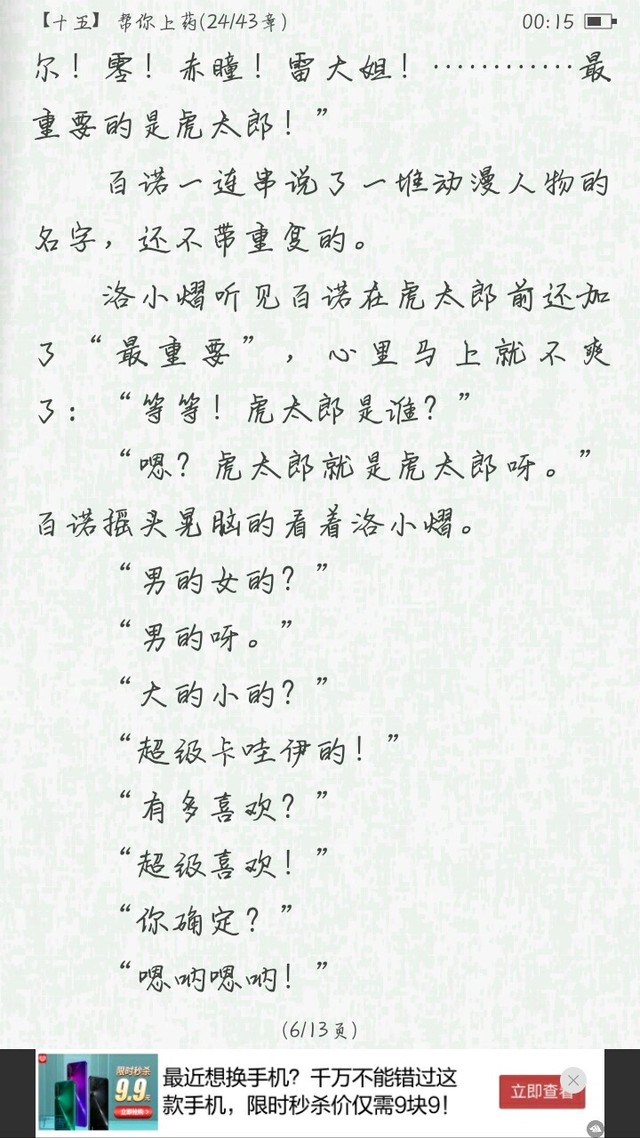 【十五】帮你上药(24/43章)
00:15
尔！零！赤瞳！雷大姐！…………最
重要的是虎太郎！”
百诺一连串说了一堆动漫人物的
名字，还不带重复的。
洛小熠听见百诺在虎太郎前还加
了“最重要”，心里马上就不爽
了：“等等！虎太郎是谁？”
“嗯？虎太郎就是虎太郎呀。”
百诺摇头晃脑的看着洛小熠。
“男的女的？”
“男的呀。”
“大的小的？”
“超级卡哇伊的！”
“有多喜欢？”
“超级喜欢！”
“你确定？”
“嗯呐嗯呐！”
(6/13页)
限时秒杀
9.9
最近想换手机？千万不能错过这
款手机，限时秒杀价仅需9块9！
立即查看